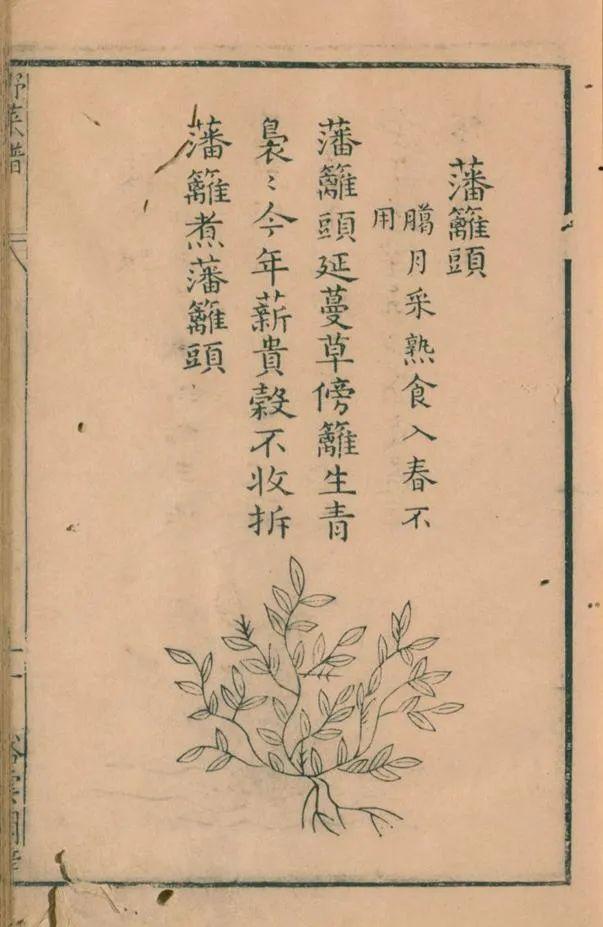 藩籬頭
臈月采熟食入春不
用
藩籬頭延蔓草傍籬生青
裊〻今年薪貴穀不收拆
藩籬煮藩籬頭
野菜譜